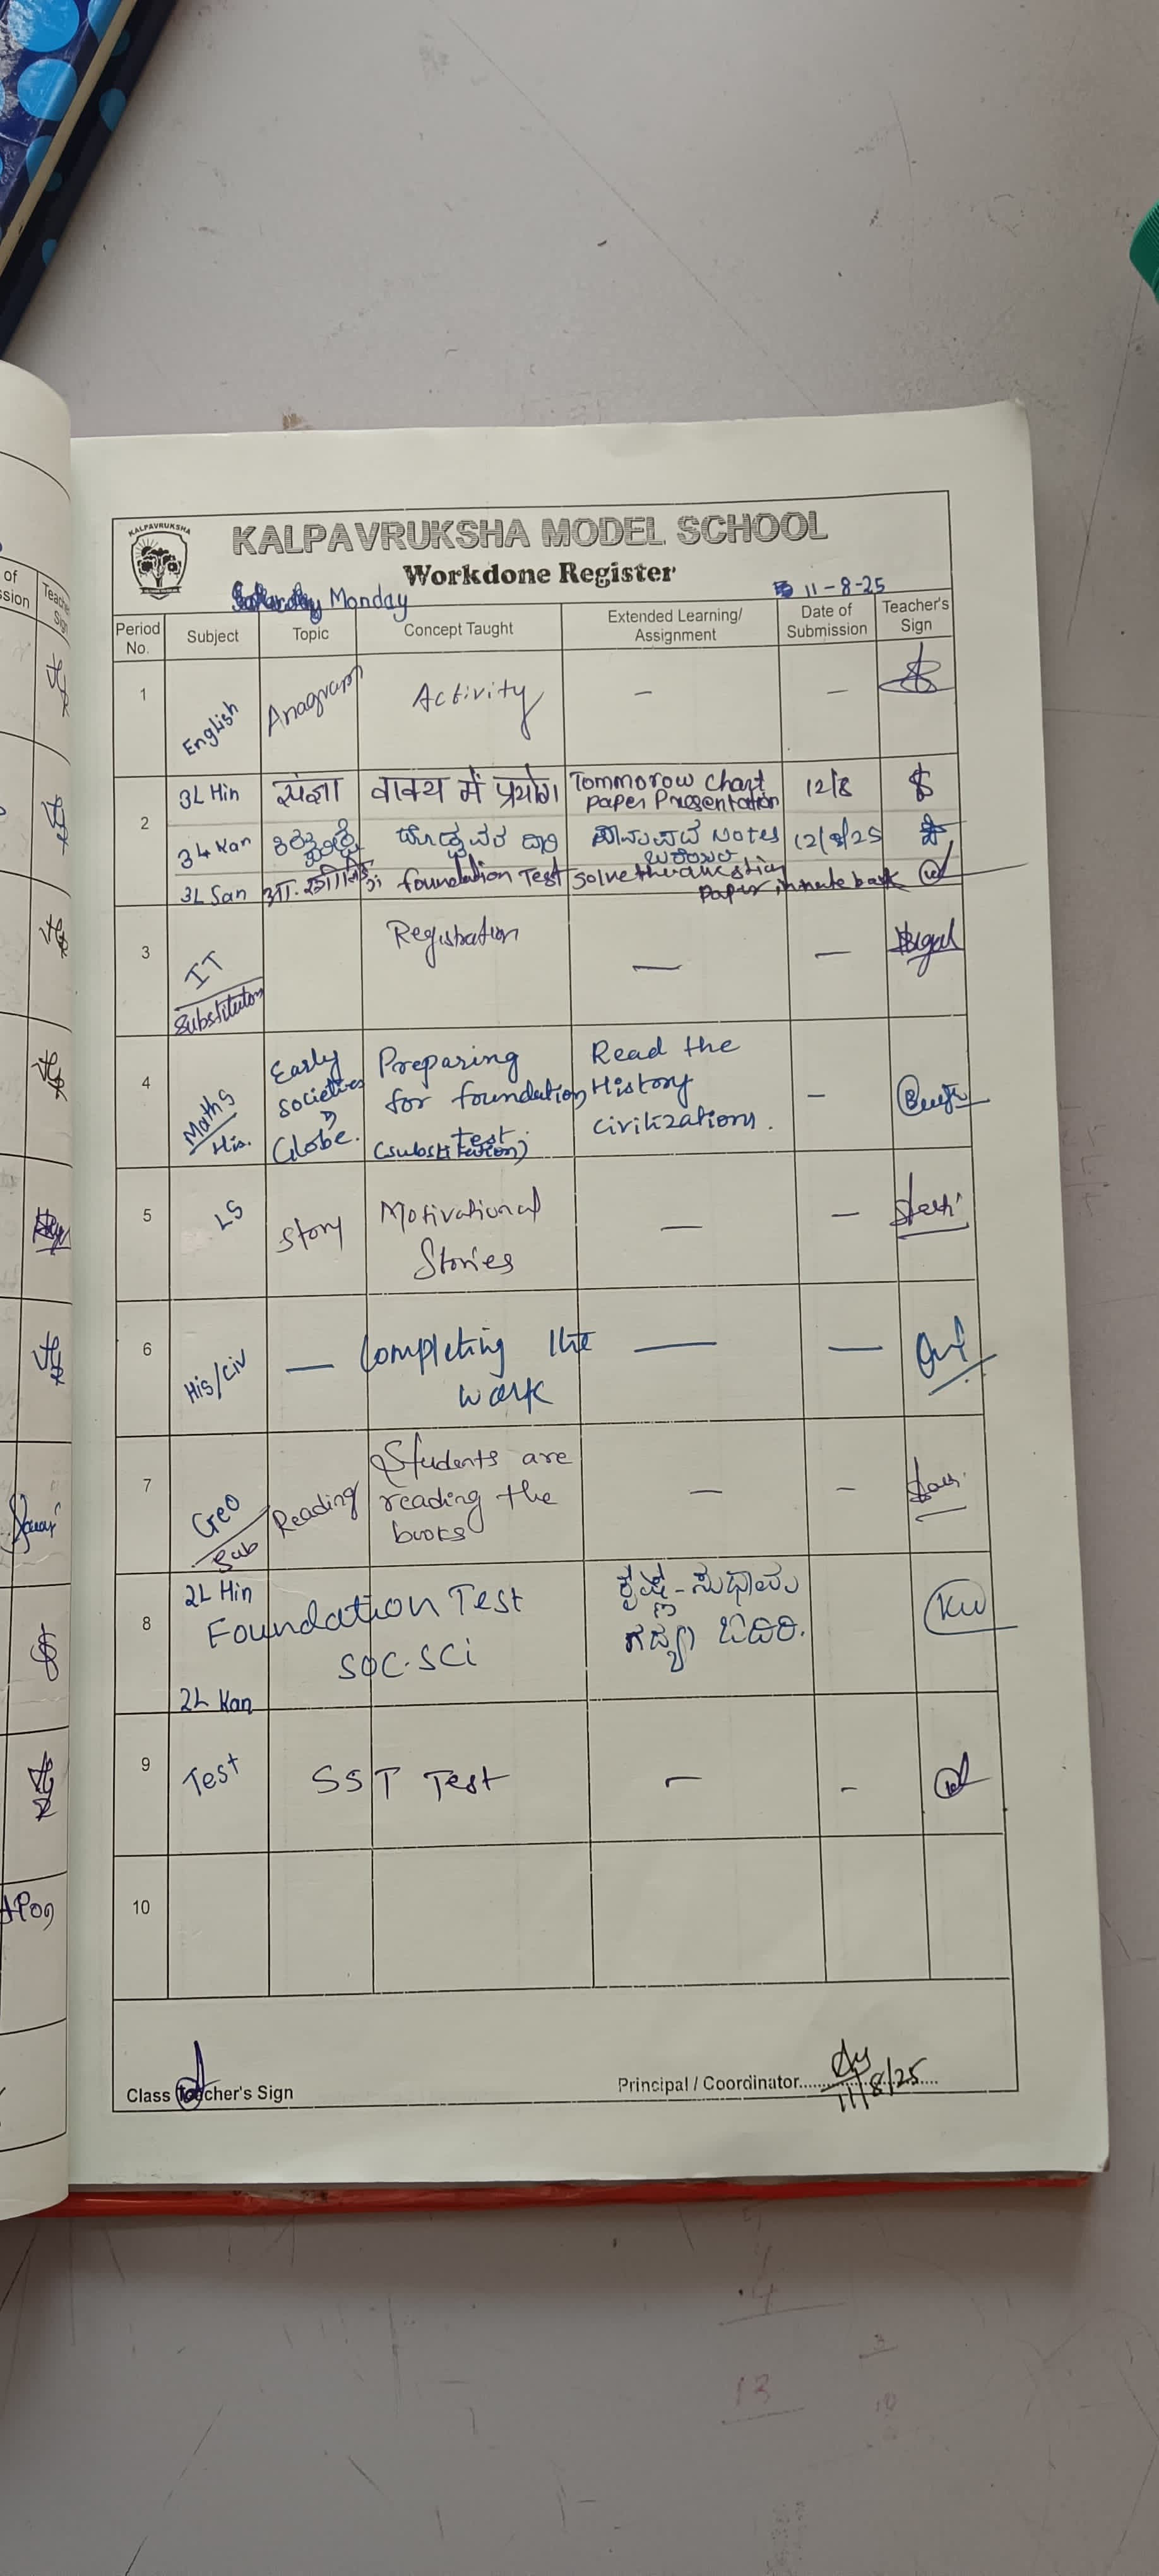 KALPAVRUKSHA
KALPAVRUKSHA MODEL SCHOOL
Workdone Register
Monday 11-8-25
Period No. Subject Topic Concept Taught Extended Learning/ Assignment Date of Submission Teacher's Sign
1 English Anagram Activity – –
2 3L Hin संज्ञा वाक्य में प्रयोग Tommorow Chart paper Presentation 12/8
3L Kan Notes 12/8/25
3L San foundation Test solve the question paper in note book
3 IT Substitution Registration — —
4 Maths His. Early societies Globe. Preparing for foundation test (substitution) Read the History civilizations. –
5 LS Story Motivational Stories — –
6 His/Civ — Completing the work — —
7 Geo Sub Reading Students are reading the books — –
8 2L Hin
Foundation Test
SOC.SCi
2L Kan
ಕೃಷ್ಣ-ಸುಧಾಮ
ಗದ್ಯ ಓದಿರಿ.
KW
9 Test SST Test – –
10
Class Teacher's Sign
Principal / Coordinator
11/8/25
of
ssion
Teacher
Sig